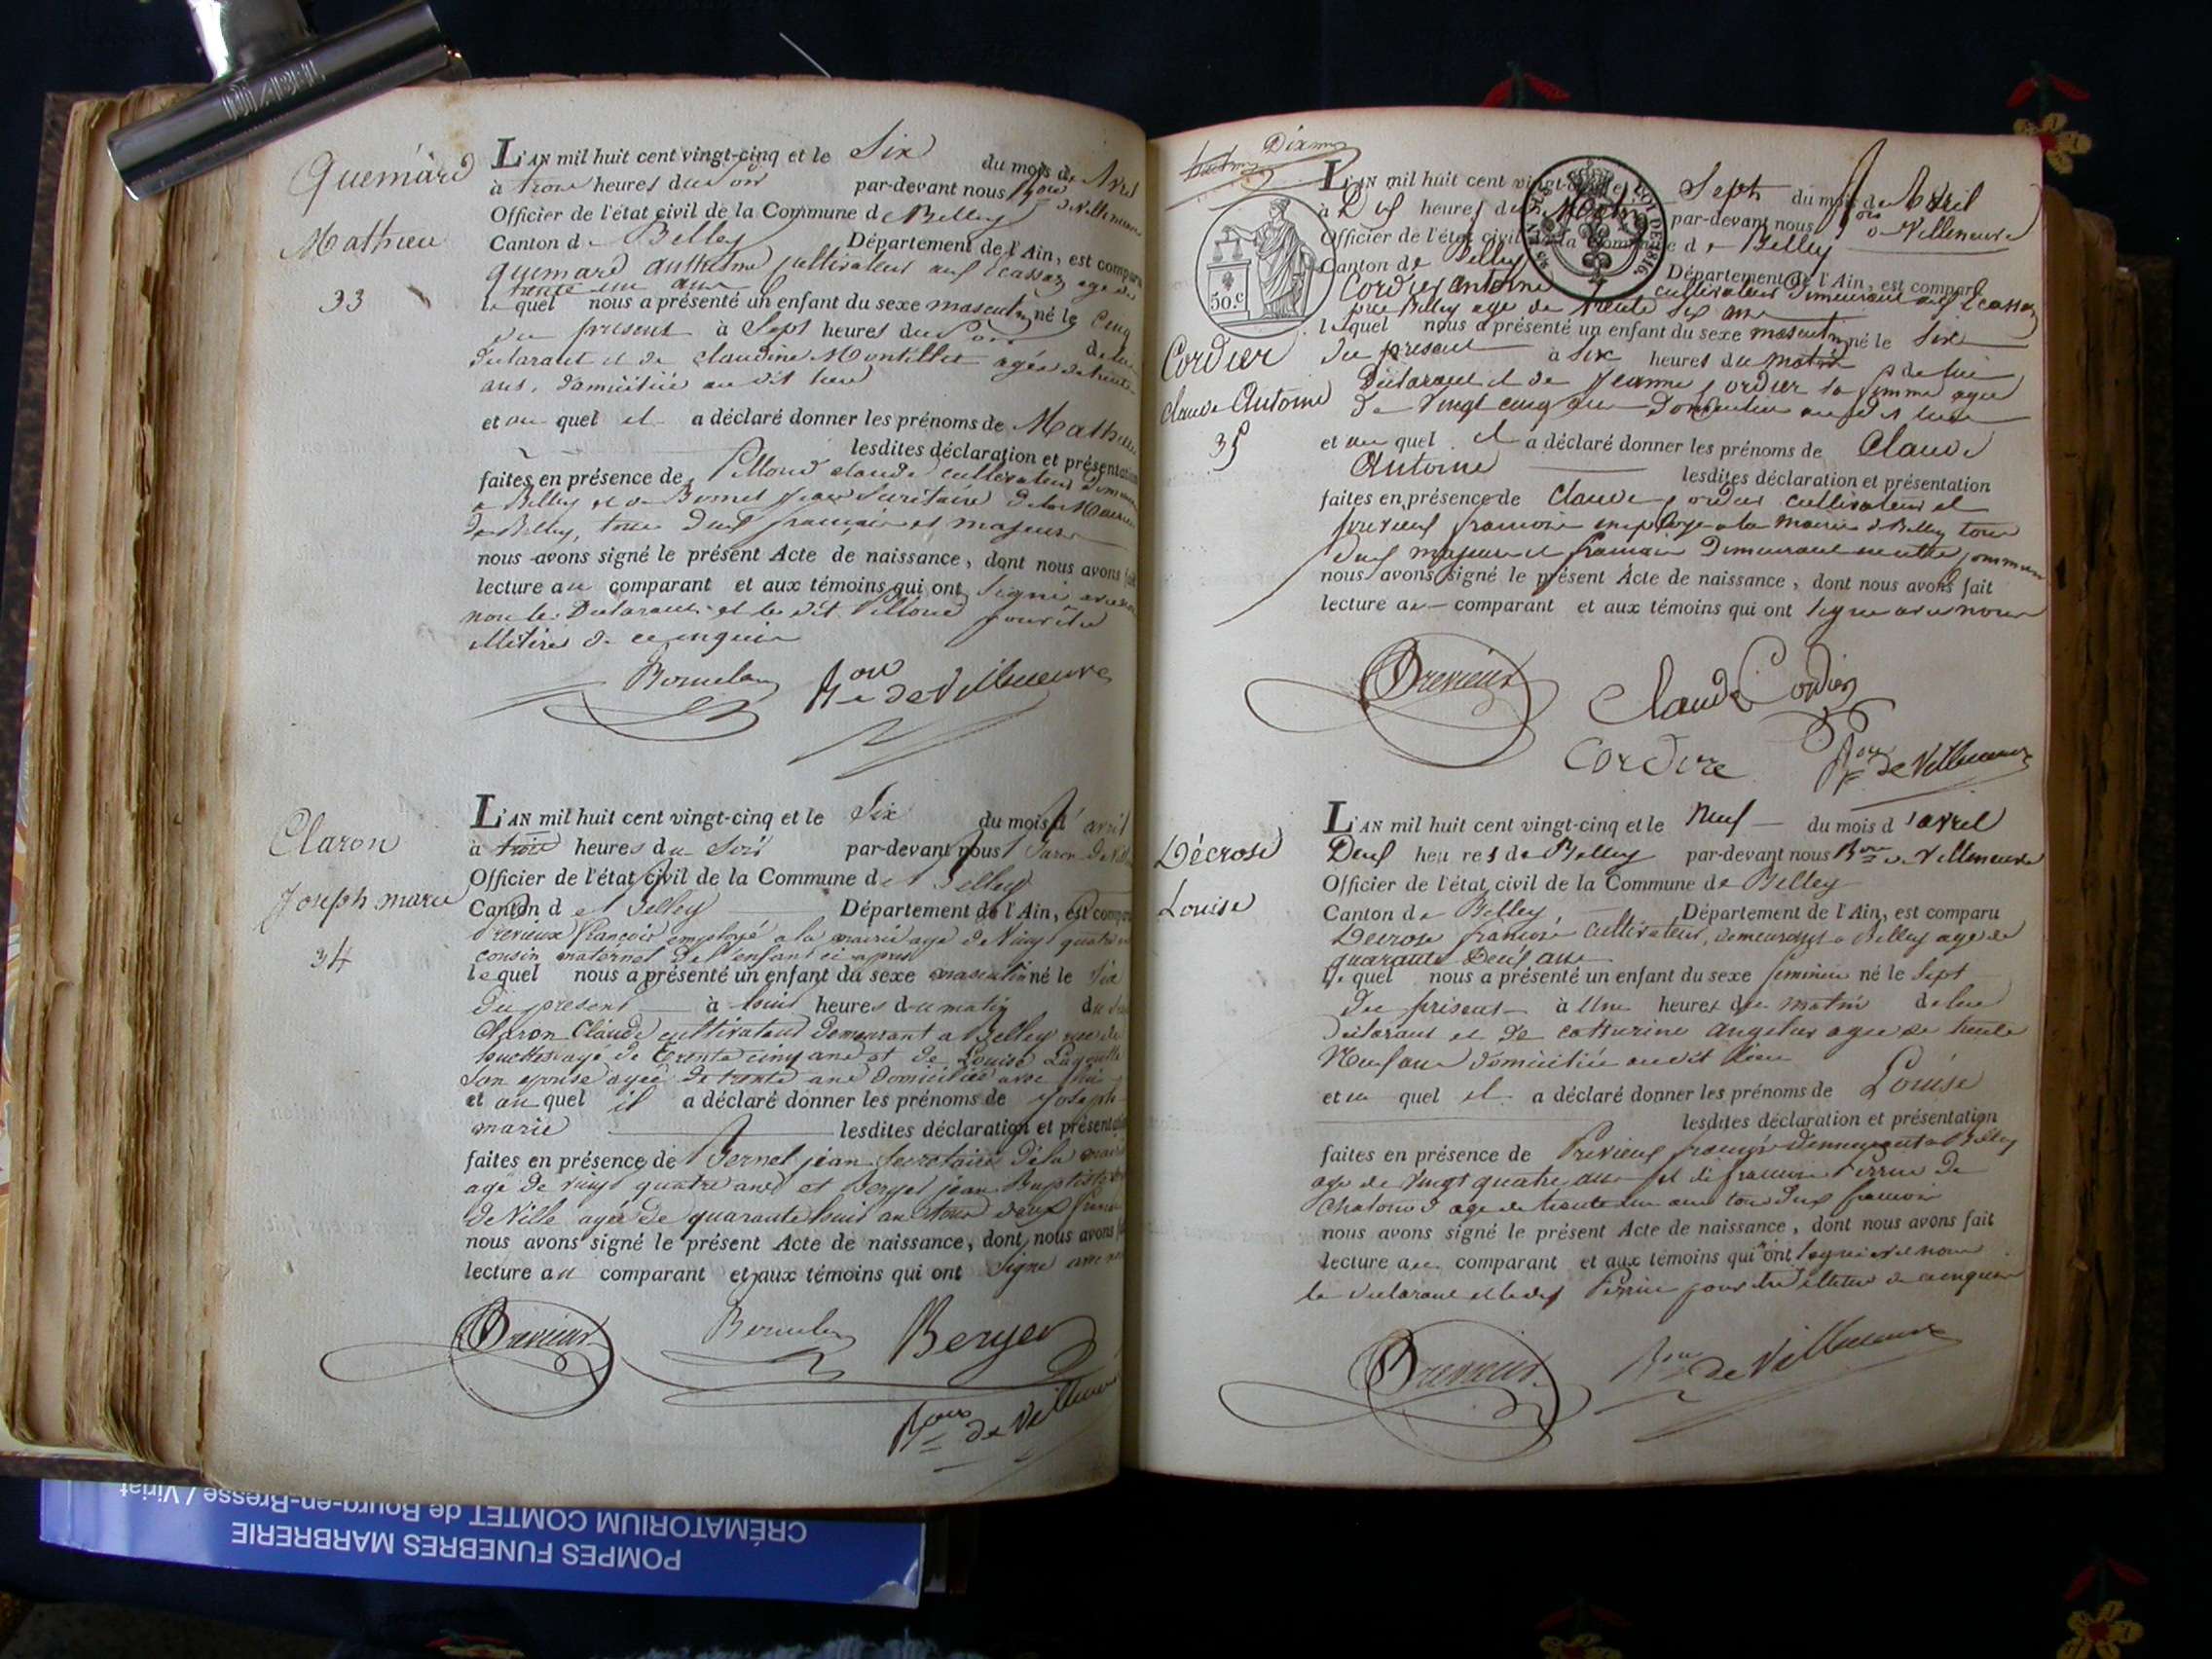 DIABEL
Quemard
Mathieu
33
L'AN mil huit cent vingt-cinq et le Six du mois de Avril
à trois heures du soir par-devant nous Bon de Villeneuve
Officier de l'état civil de la Commune de Belley
Canton de Belley Département de l'Ain, est comparu
quemard anthelme cultivateur aux Ecassaz agé de
trente un ans
le quel nous a présenté un enfant du sexe masculin né le Cinq
du present à Sept heures du Soir de lui
declarant et de claudine Montillet agée de trente
ans, domiciliée au dit lieu
et au quel il a déclaré donner les prénoms de Mathieu
lesdites déclaration et présentation
faites en présence de claude cultivateur
a Belley et de Bornet Jean Secrétaire de la Mairie
de Belley, tous deux français et majeurs
nous avons signé le présent Acte de naissance, dont nous avons fait
lecture au comparant et aux témoins qui ont signé avec
non le Declarant et le dit pour être
illétirés de ce enquis
Bon de Villeneuve
Claron
Joseph marie
34
L'AN mil huit cent vingt-cinq et le Six du mois d'avril
à trois heures du Soir par-devant nous Baron de
Officier de l'état civil de la Commune de Belley
Canton de Belley Département de l'Ain, est comparu
Prévieux François employé a la mairie agé de Vingt quatre
cousin maternel de l'enfant ci apres
lequel nous a présenté un enfant du sexe masculin né le Six
du present à huit heures du matin du
Claron Claude cultivateur demeurant a Belley rue de
agé de trente cinq ans et de Louise
Son epouse agée de trente ans Domiciliée avec lui
et au quel il a déclaré donner les prénoms de Joseph
marie lesdites déclaration et présentation
faites en présence de Bernel jean Secrétaire de la mairie
agé de vingt quatre ans et Berger jean Baptiste
de Ville agée de quarante huit ans tous deux
nous avons signé le présent Acte de naissance, dont nous avons
lecture au comparant et aux témoins qui ont signé avec
Prévieux
Berger
Bon de Villeneuve
50.c
DE 1816.
Cordier
Claude Antoine
35
L'AN mil huit cent vingt-cinq et le Sept du mois de Avril
à Dix heures du Matin par-devant nous Bon de Villeneuve
Officier de l'état civil de la Commune de Belley
Canton de Belley Département de l'Ain, est comparu
Cordier antoine cultivateur demeurant aux Ecassaz
près Belley age de trente six ans
lequel nous a présenté un enfant du sexe masculin né le Six
du present à Six heures du matin de lui
Déclarant et de Jeanne Cordier sa femme agée
de vingt cinq ans Domiciliée au dit lieu
et au quel il a déclaré donner les prénoms de Claude
Antoine lesdites déclaration et présentation
faites en présence de Claude Cordier cultivateur et
previeux francois employe a la mairie de Belley tous
deux majeurs et francais Demeurant en cette commune
nous avons signé le présent Acte de naissance, dont nous avons fait
lecture au comparant et aux témoins qui ont signé avec nous
Prévieux
Claude Cordier
Cordire
Bon de Villeneuve
Décrose
Louise
L'AN mil huit cent vingt-cinq et le Neuf du mois d'avril
Deux heures de Belley par-devant nous Bon de Villeneuve
Officier de l'état civil de la Commune de Belley
Canton de Belley, Département de l'Ain, est comparu
Décrose francois cultivateur, demeurant a Belley age de
quarante Deux ans
le quel nous a présenté un enfant du sexe feminin né le Sept
du present à Une heures du matin de lui
declarant et de catherine agée de trente
Neuf ans domiciliée audit lieu
et au quel il a déclaré donner les prénoms de Louise
lesdites déclaration et présentation
faites en présence de Prévieux françois demeurant a Belley
age de vingt quatre ans et de francois Perrin de
age de trente un ans tous deux francois
nous avons signé le présent Acte de naissance, dont nous avons fait
lecture au comparant et aux témoins qui ont signé avec nous
le declarant et ledit Perrin pour être illétirés de ce enquis
Prévieux
Bon de Villeneuve
CRÉMATORIUM COMTET de Bourg-en-Bresse / Viriat
POMPES FUNEBRES MARBRERIE